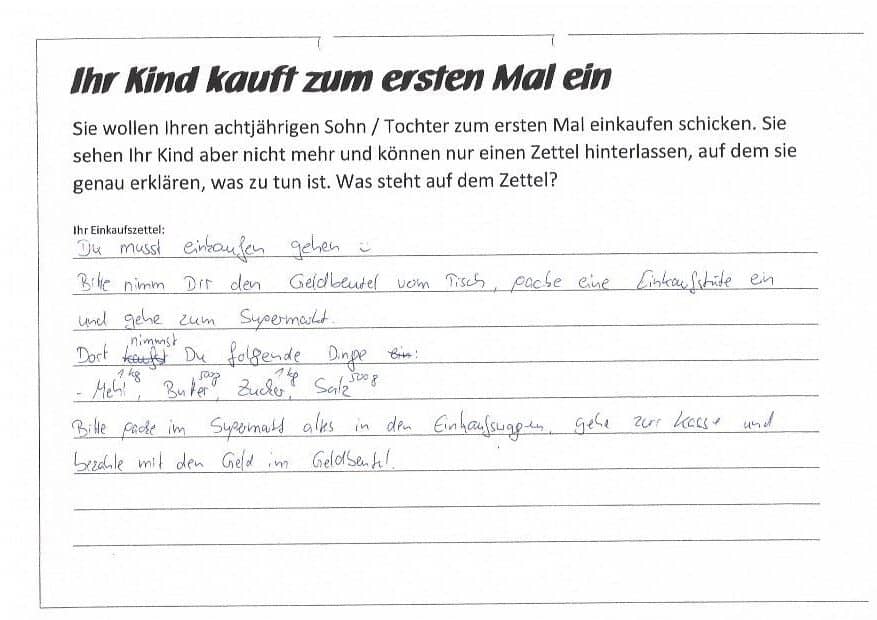 Ihr Kind kauft zum ersten Mal ein
Sie wollen Ihren achtjährigen Sohn / Tochter zum ersten Mal einkaufen schicken. Sie
sehen Ihr Kind aber nicht mehr und können nur einen Zettel hinterlassen, auf dem sie
genau erklären, was zu tun ist. Was steht auf dem Zettel?
Ihr Einkaufszettel:
Du musst einkaufen gehen
Bitte nimm Dir den Geldbeutel vom Tisch, packe eine Einkaufstüte ein
und gehe zum Supermarkt.
nimmst
Dort kaufst Du folgende Dinge :
1 kg 500g 1 kg 500 g
- Mehl, Butter, Zucker, Salz
Bitte packe im Supermarkt alles in den Einkaufswagen, gehe zur Kasse und
bezahle mit den Geld im Geldbeutel.